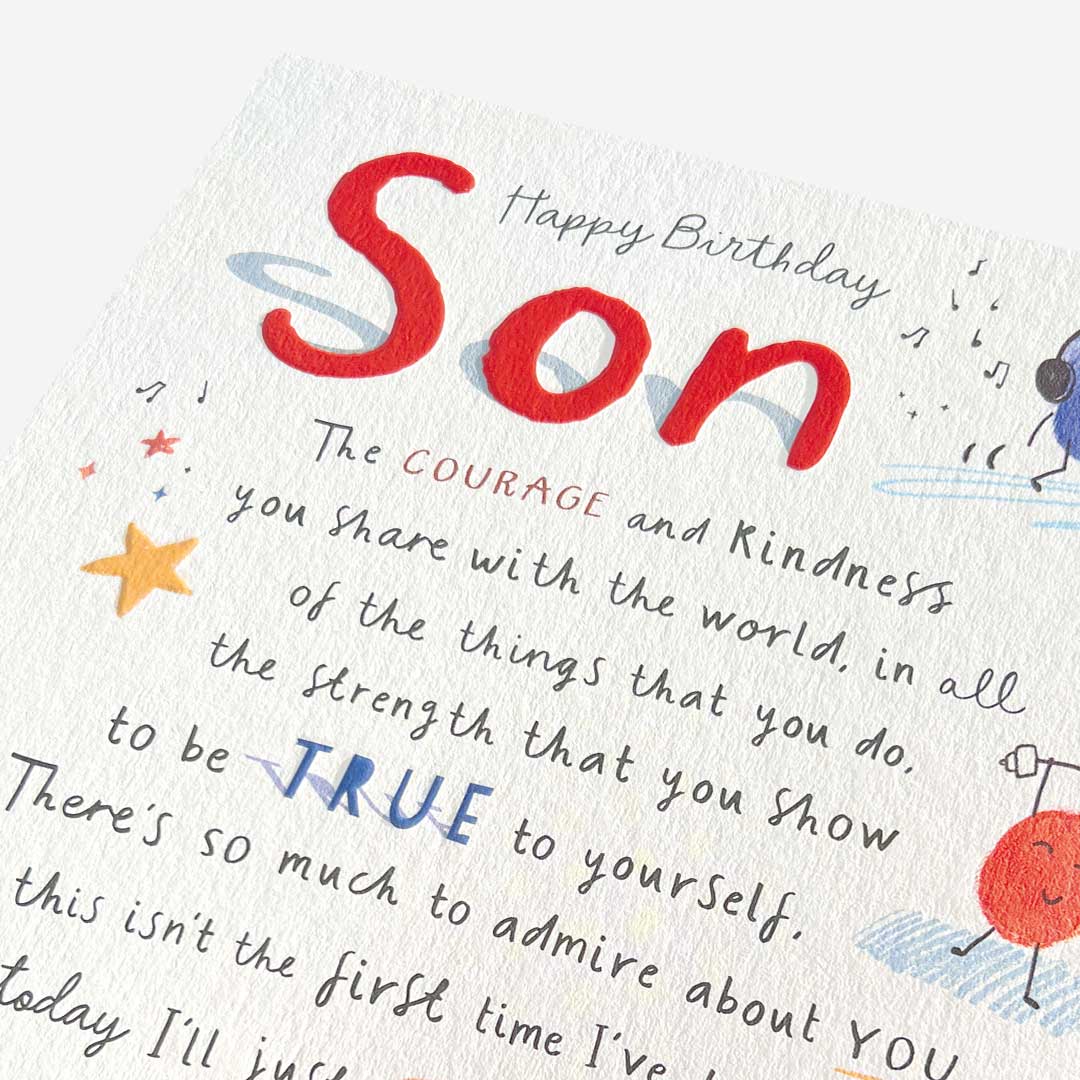 Happy Birthday
Son
The COURAGE and Kindness
you share with the world, in all
of the things that you do,
the strength that you show
to be TRUE to yourself.
There's so much to admire about YOU
this isn't the first time I've
today I'll just